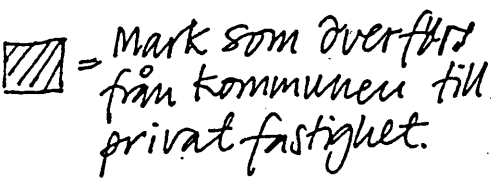 = Mark som överförs
från kommunen till
privat fastighet.